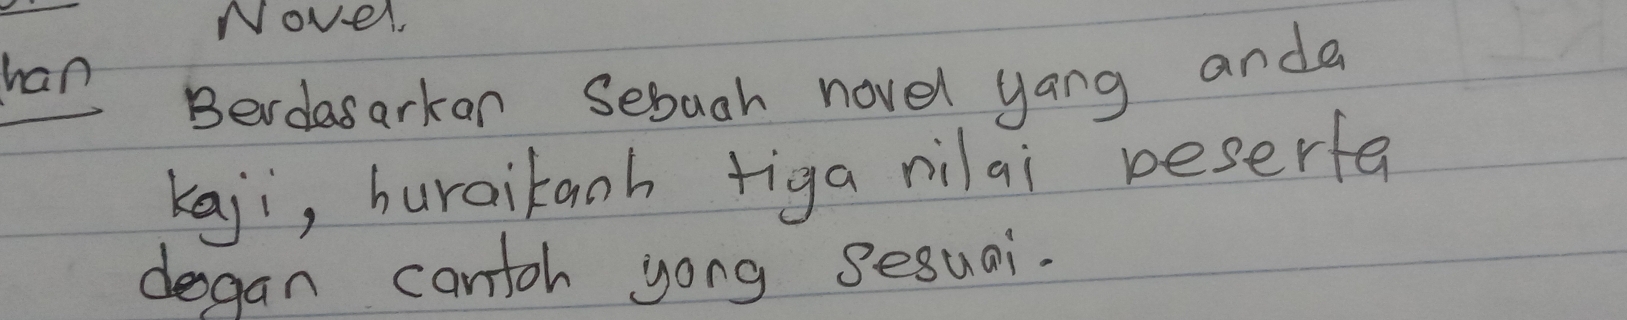 Novel.
han Berdasarkan sebuah novel yang anda
kaji, huraikanh tiga nilai beserta
degan contoh yang sesuai.